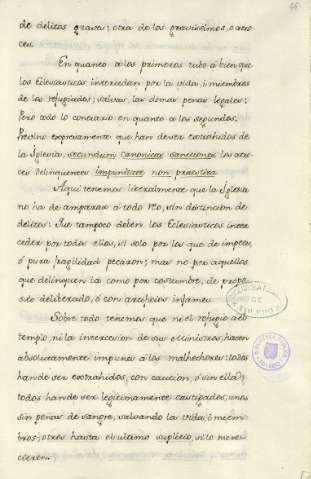 46
de delitos graves; otra de los gravissimos, o atro
ces.
En quanto a los primeros tubo â bien que
los Eclesiasticos intercedan por la vida, i miembros
de los refugiados; salvas las demas penas legales;
Pero todo lo contrario en quanto a los segundos.
Previno expresamente que han de ser extrahidos de
la Iglesia, secundum canonicas sanctiones los atro
ces delinquentes impunitate non praestita
Aqui tenemos literalmente que la Iglesia
no ha de amparar â todo reo, sin distincion de
delitos: Que tampoco deben los Eclesiasticos inter
ceder por todos ellos, si solo por los que de impetu,
ô pura fragilidad pecaron; mas no por aquellos
que delinquen ia como por costumbre, de propo
sito deliberado, ô con artificios infames
Sobre todo tenemos que ni el refugio del
templo, ni la intercesion de sus Ministros, hacen
absolutamente impunes â los malhechores: todos
han de ser extrahidos, con caucion, ô sin ella;
todos han de ser legitimamente castigados, unos
sin penas de sangre, salvando la vida, i miem
bros; otros hasta el ultimo suplicio, si lo mere
cieren.
DE
TOLEDO
BIBLIOTECA PUBLICA
TOLEDO